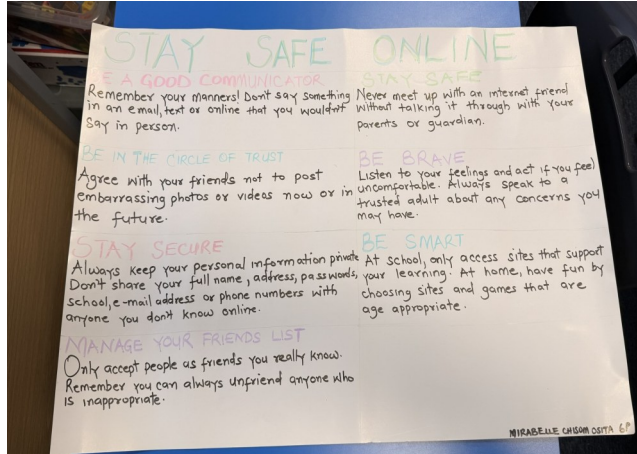 STAY SAFE ONLINE
BE A GOOD COMMUNICATOR
Remember your manners! Don't say something
in an email, text or online that you wouldn't
say in person.
BE IN THE CIRCLE OF TRUST
Agree with your friends not to post
embarrassing photos or videos now or in
the future.
STAY SECURE
Always keep your personal information private
Don't share your full name, address, passwords,
school, e-mail address or phone numbers with
anyone you don't know online.
MANAGE YOUR FRIENDS LIST
Only accept people as friends you really know.
Remember you can always unfriend anyone who
is inappropriate.
STAY SAFE
Never meet up with an internet friend
without talking it through with your
parents or guardian.
BE BRAVE
Listen to your feelings and act if you feel
uncomfortable. Always speak to a
trusted adult about any concerns you
may have.
BE SMART
At school, only access sites that support
your learning. At home, have fun by
choosing sites and games that are
age appropriate.
MIRABELLE CHISOM OSITA 6P